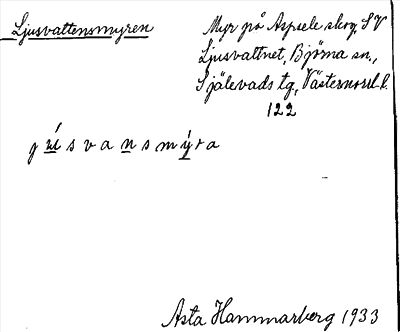 Ljusvattensmyren
Myr på Aspsele skog, SV
Ljusvattnet, Björna sn.,
Själevads tg, Västernorrl. l.
122
Asta Hammarberg 1933